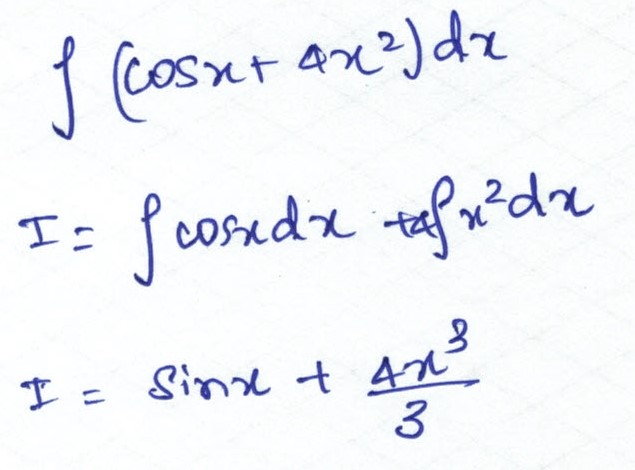 ∫ (cosx + 4x²) dx
I = ∫ cosx dx + 4∫ x² dx
I = sinx + 4x³/3